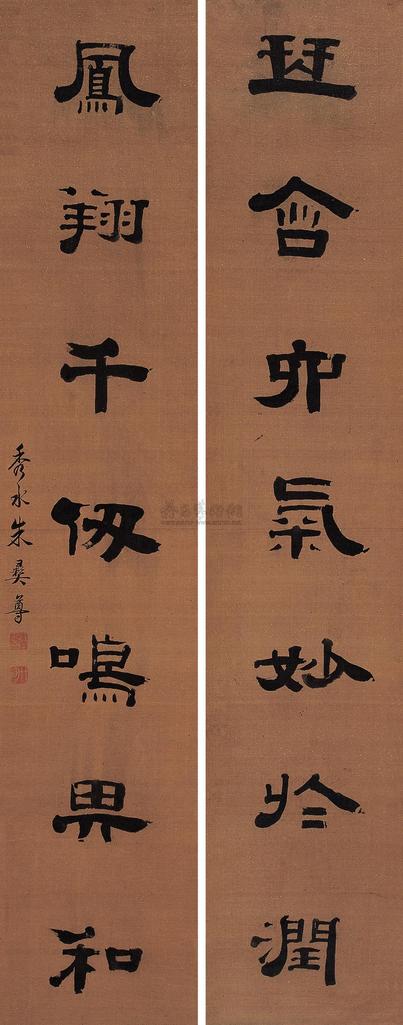 琴含卯氣妙於潤
鳳翔千仞鳴和
秀水朱彝尊